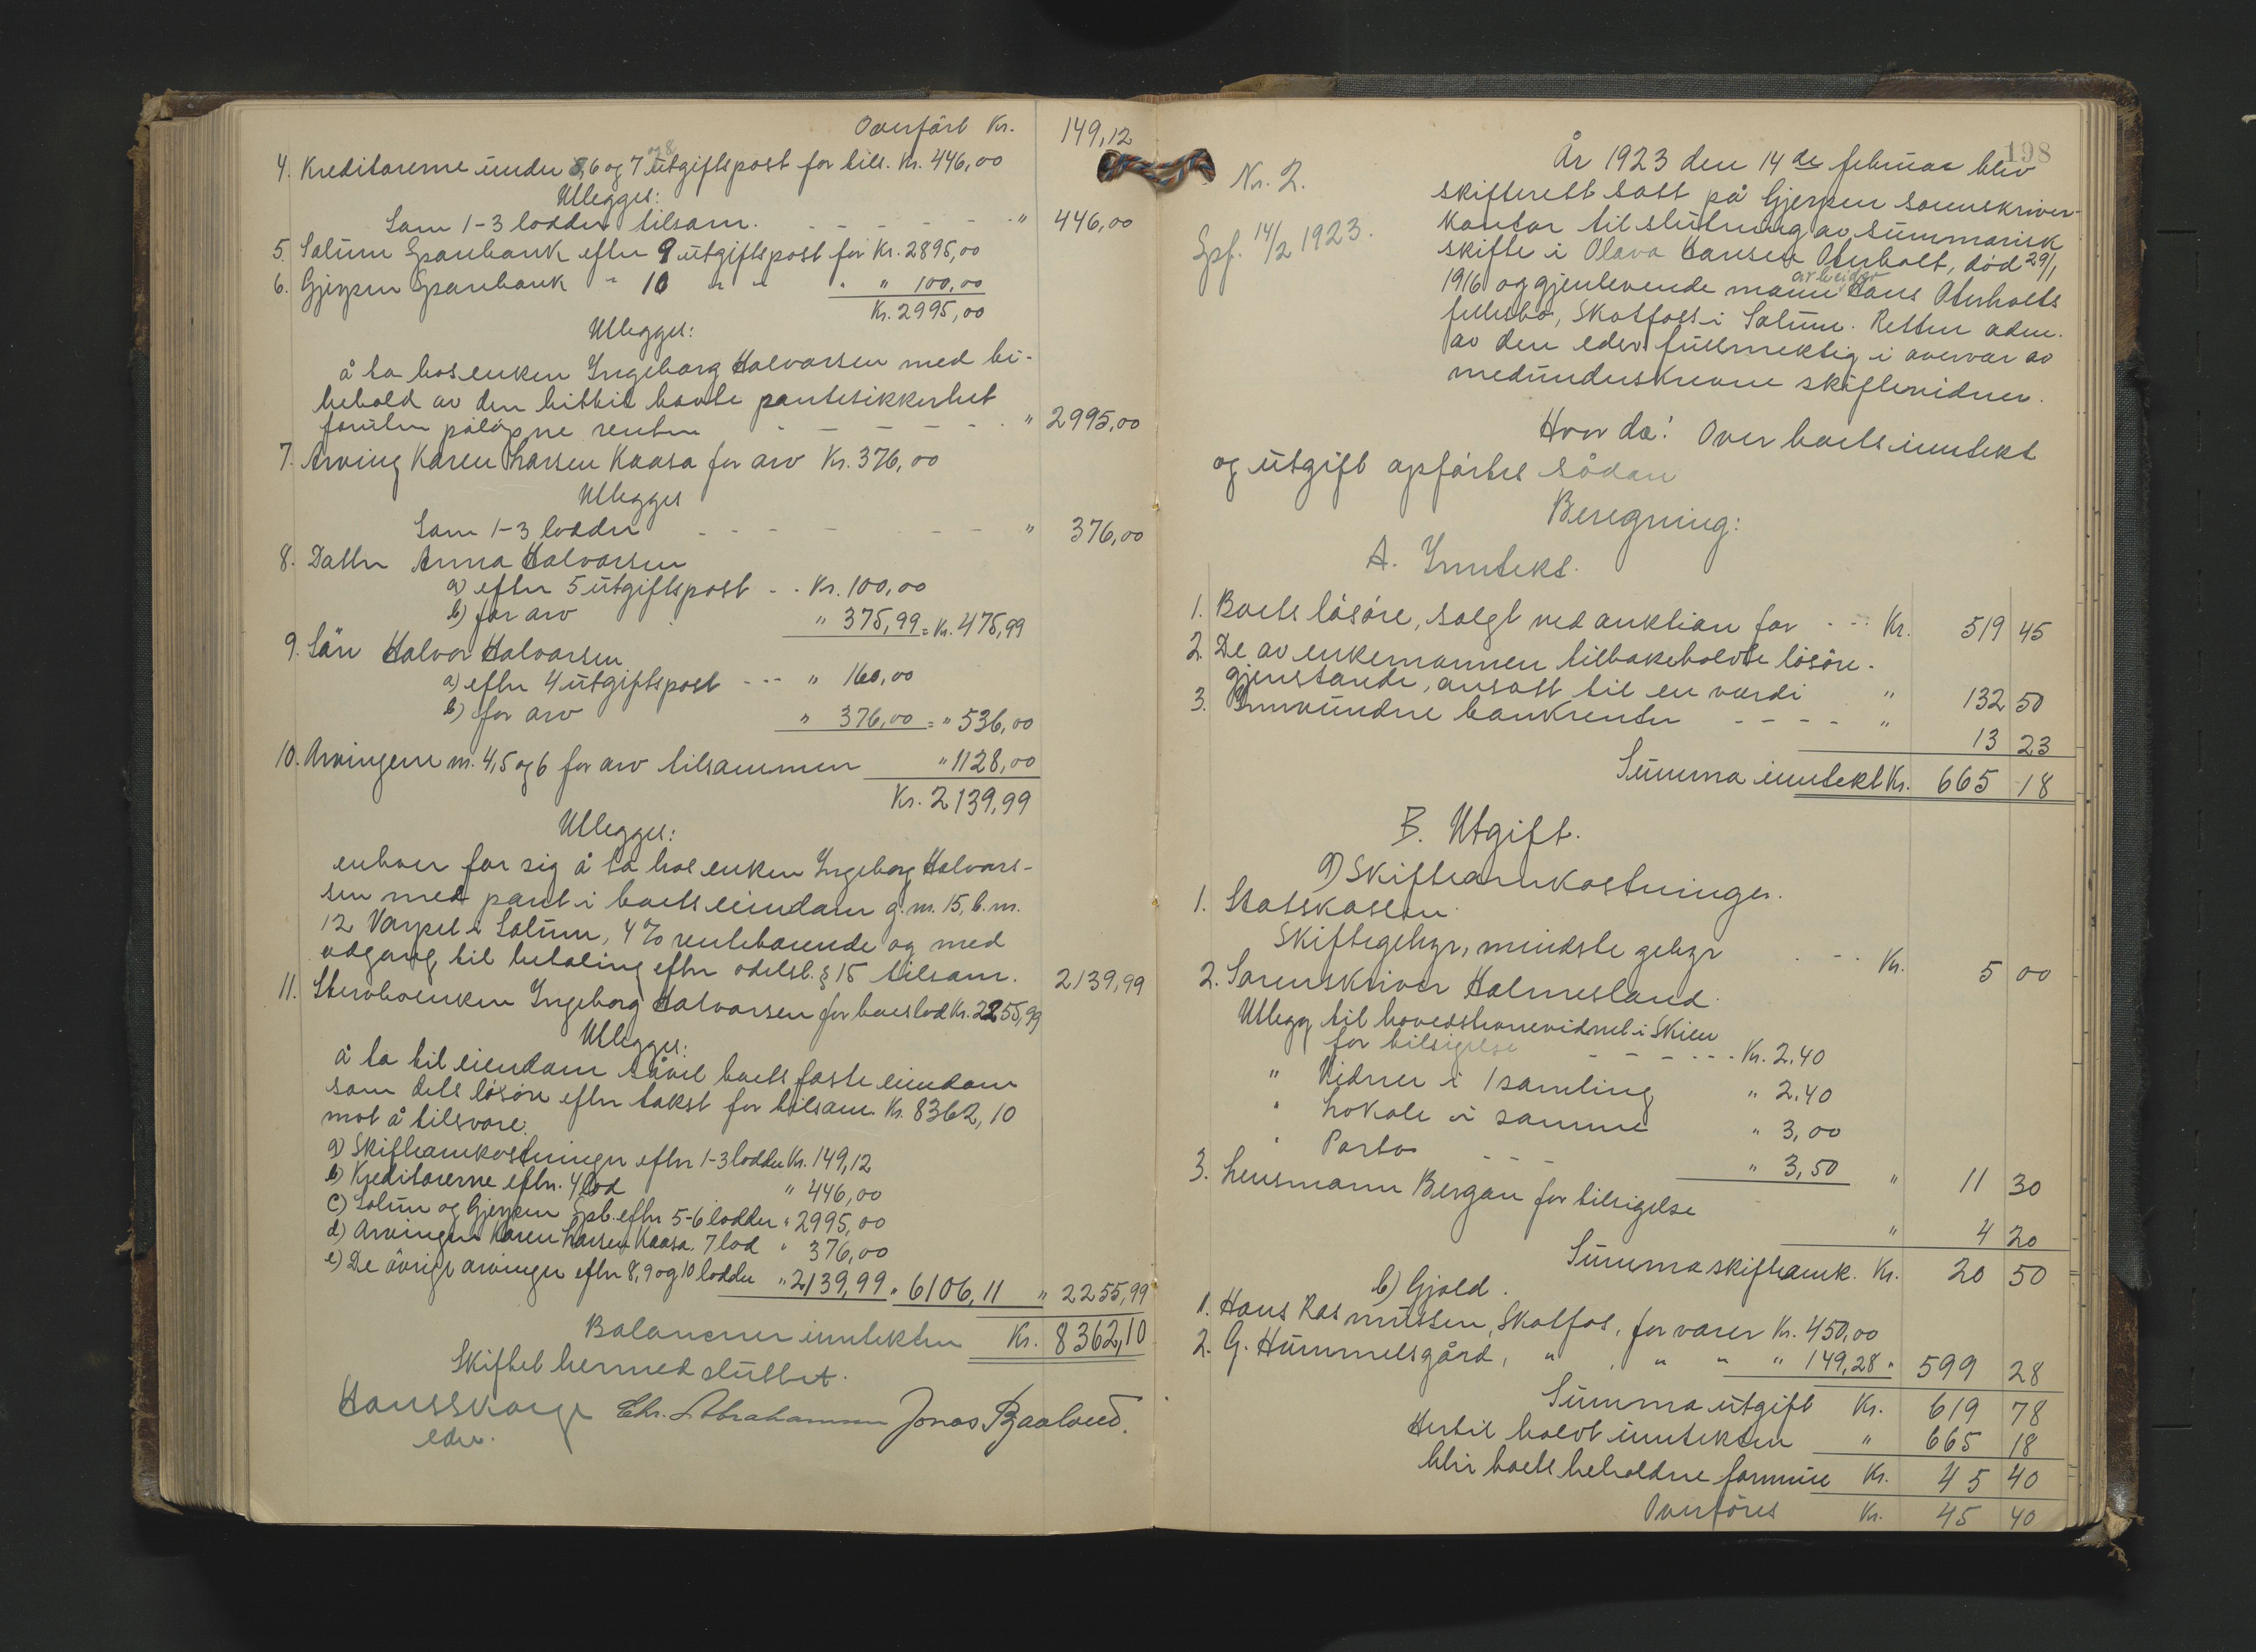 Overført Kr. 149,12
4. Kreditorerne under 6 og 7 og 8 utgiftspost for tils. Kr. 446,00
Utlegges:
Som 1-3 lodder tilsam. - - - - - " 446,00
5. Solum Sparebank efter 9 utgiftspost for Kr. 2895,00
6. Gjerpen Sparebank " 10 " " " " 100,00
Kr. 2995,00
Utlegges:
å ta hos enken Ingeborg Halvorsen med bi-
behold av den hittil havte pantesikkerhet
foruten påløpne renter - - - - - " 2995,00
7. Arving Karen Larsen Kaasa for arv Kr. 376,00
Utlegges
Som 1-3 lodder - - - - - " 376,00
8. Datter Anna Halvorsen
a) efter 5 utgiftspost - - Kr. 100,00
b) for arv " 375,99 = Kr. 475,99
9. Søn Halvor Halvorsen
a) efter 4 utgiftspost - - - " 160,00
b) for arv " 376,00 = " 536,00
10. Arvingene nr. 4, 5 og 6 for arv tilsammen " 1128,00
Kr. 2139,99
Utlegges:
enhver for sig å ta hos enken Ingeborg Halvor-
sen med pant i boets eiendom g. nr. 15, b. nr.
12 Varpet i Solum, 4 % rentebærende og med
adgang til betaling efter odelsl. § 15 tilsam. 2139,99
11. Stervboenken Ingeborg Halvorsen for boeslod Kr. 2255,99
Utlegges:
å ta til eiendom såvel boets faste eiendom
som dets løsøre efter takst for tilsam. Kr. 8362,10
mot å tilsvare:
a) Skifteomkostninger efter 1-3 lodder Kr. 149,12
b) Kreditorerne efter 4 lod " 446,00
c) Solum og Gjerpen Spb. efter 5-6 lodder " 2995,00
d) Arvingen Karen Larsen Kaasa 7 lod " 376,00
e) De øvrige arvinger efter 8, 9 og 10 lodder " 2139,99 " 6106,11 " 2255,99
Balancerer inntekten Kr. 8362,10
Skiftet hermed sluttet.
Hans Skarge Chr. Abrahamsen Jonas Baaland.
edsv.
198
Nr. 2.
Spf. 14/2 1923.
År 1923 den 14de februar blev
skifterett satt på Gjerpen sorenskriver-
kontor til slutning av summarisk
skifte i Olava Hansen Oterholt, død 29/1
1916 og gjenlevende mann arbeider Hans Oterholts
fellesbo, Skotfoss i Solum. Retten adm.
av den edsv. fullmektig i overvær av
medunderskrevne skiftevidner.
Hvor da: Over boets inntekt
og utgift opførtes sådan
Beregning:
A. Inntekt.
1. Boets løsøre, solgt ved auktion for - - - Kr. 519 45
2. De av enkemannen tilbakeholdte løsøre-
gjenstande, ansatt til en værdi " 132 50
3. Innvundne bankrenter - - - - " 13 23
Summa inntekt Kr. 665 18
B. Utgift.
a) Skifteomkostninger.
1. Statskassen
Skiftegebyr, mindste gebyr - - - Kr. 5 00
2. Sorenskriver Holmesland
Utlegg til hovedstevnevidnet i Skien
for tilsigelse - - - - - Kr. 2,40
" Vidner i 1 samling " 2,40
" Lokale i samme " 3,00
" Porto - - - " 3,50 " 11 30
3. Lensmann Bergan for tilsigelse " 4 20
Summa skifteomk. Kr. 20 50
b) Gjæld.
1. Hans Rasmussen, Skotfos, for varer Kr. 450,00
2. G. Hummelsgård, " " " " 149,28 " 599 28
Summa utgift Kr. 619 78
Hertil holdt inntekten " 665 18
blir boets beholdne formue Kr. 45 40
Overføres Kr. 45 40